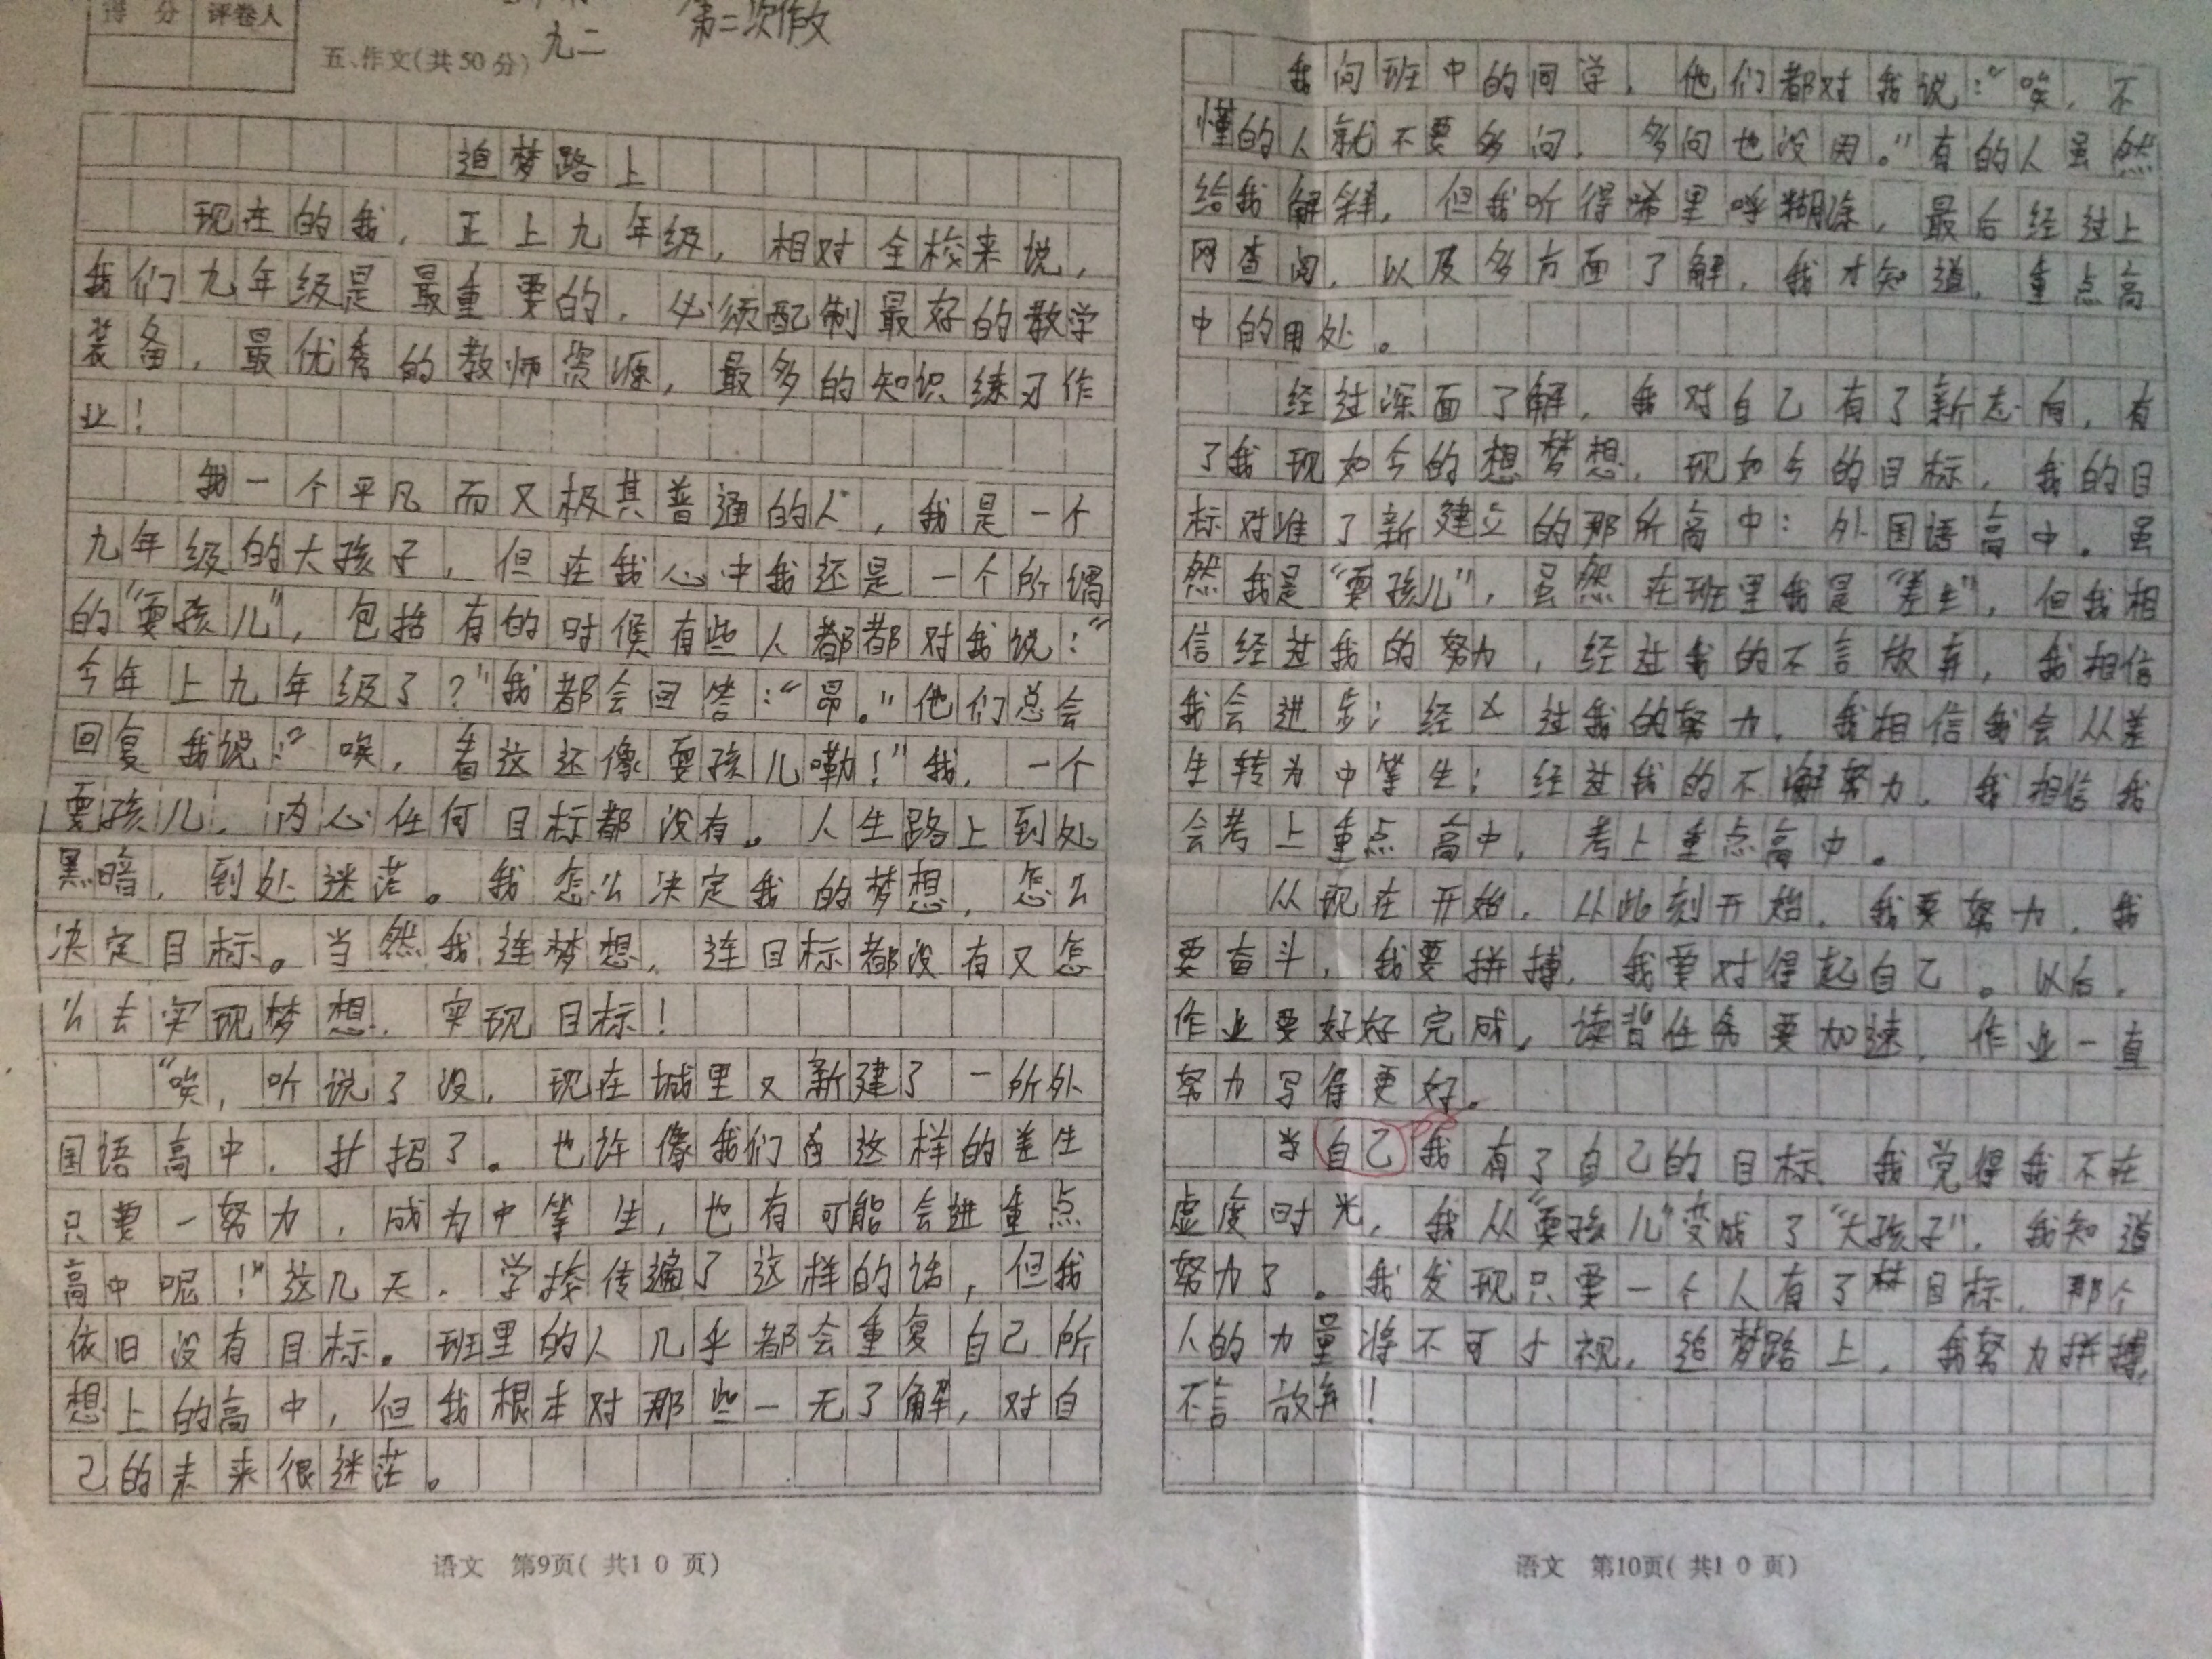 得 分 评卷人
九二
第二次作文
五、作文(共50分)
追梦路上
现在的我，正上九年级，相对全校来说，
我们九年级是最重要的，必须配制最好的教学
装备，最优秀的教师资源，最多的知识练习作
业！
我一个平凡而又极其普通的人，我是一个
九年级的大孩子，但在我心中我还是一个所谓
的“耍孩儿”，包括有的时候有些人都都对我说：“
今年上九年级了？”我都会回答：“昂。”他们总会
回复我说：“唉，看这还像耍孩儿嘞！”我，一个
耍孩儿，内心任何目标都没有。人生路上到处
黑暗，到处迷茫。我怎么决定我的梦想，怎么
决定目标。当然我连梦想，连目标都没有又怎
么去实现梦想，实现目标！
“唉，听说了没，现在城里又新建了一所外
国语高中，扩招了。也许像我们这样的差生
只要一努力，成为中等生，也有可能会进重点
高中呢！”这几天，学校传遍了这样的话，但我
依旧没有目标。班里的人几乎都会重复自己所
想上的高中，但我根本对那些一无了解，对自
己的未来很迷茫。
语文 第9页( 共1 0 页)
我问班中的同学，他们都对我说：“唉，不
懂的人就不要多问，多问也没用。”有的人虽然
给我解释，但我听得唏里呼糊涂，最后经过上
网查阅，以及多方面了解，我才知道，重点高
中的用处。
经过深面了解，我对自己有了新志向，有
了我现如今的想梦想，现如今的目标，我的目
标对准了新建立的那所高中：外国语高中。虽
然我是“耍孩儿”，虽然在班里我是“差生”，但我相
信经过我的努力，经过我的不言放弃，我相信
我会进步；经过我的努力，我相信我会从差
生转为中等生；经过我的不懈努力，我相信我
会考上重点高中，考上重点高中。
从现在开始，从此刻开始，我要努力，我
要奋斗，我要拼搏，我要对得起自己。以后，
作业要好好完成，读背任务要加速，作业一直
努力写得更好。
当自己我有了自己的目标，我觉得我不在
虚度时光，我从“耍孩儿”变成了“大孩子”，我知道
努力了。我发现只要一个人有了目标，那个
人的力量将不可小视，追梦路上，我努力拼搏，
不言放弃！
语文 第10页( 共1 0 页)